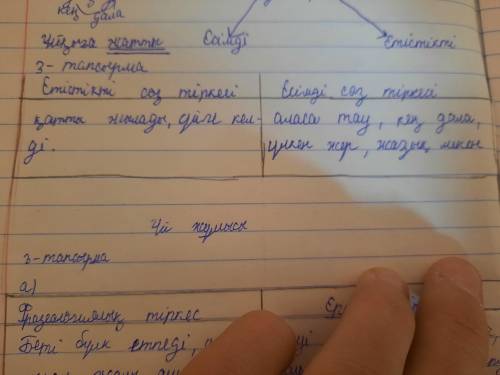 кең дала
Ұйқыға жатты Есімді Етістікті
3-тапсырма
Етістікті сөз тіркесі Есімді сөз тіркесі
қатты жылады, үйге кел- аласа тау, кең дала,
ді. үлкен жер, жазық мекен
Үй жұмысы
3-тапсырма
а)
Фразеологиялық тіркес Ер
Беті бүлк етпеді,